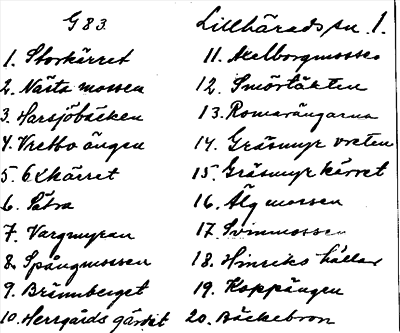 G 83.
Lillhärads sn. 1.
1. Storkärret
2. Nästa mossen
3. Harsjöbäcken
4. Vretbo ängen
5. Exkärret
6. Sätra
7. Vargmyran
8. Spångmossen
9. Brännberget
10. Herrgårds gärdet
11. Axelborgmossen
12. Smörtäkten
13. Romarängarna
14. Gräsmyr vreten
15. Gräsmyr kärret
16. Älg mossen
17. Svinmossen
18. Hinriks hällar
19. Koppängen
20. Bäckebron